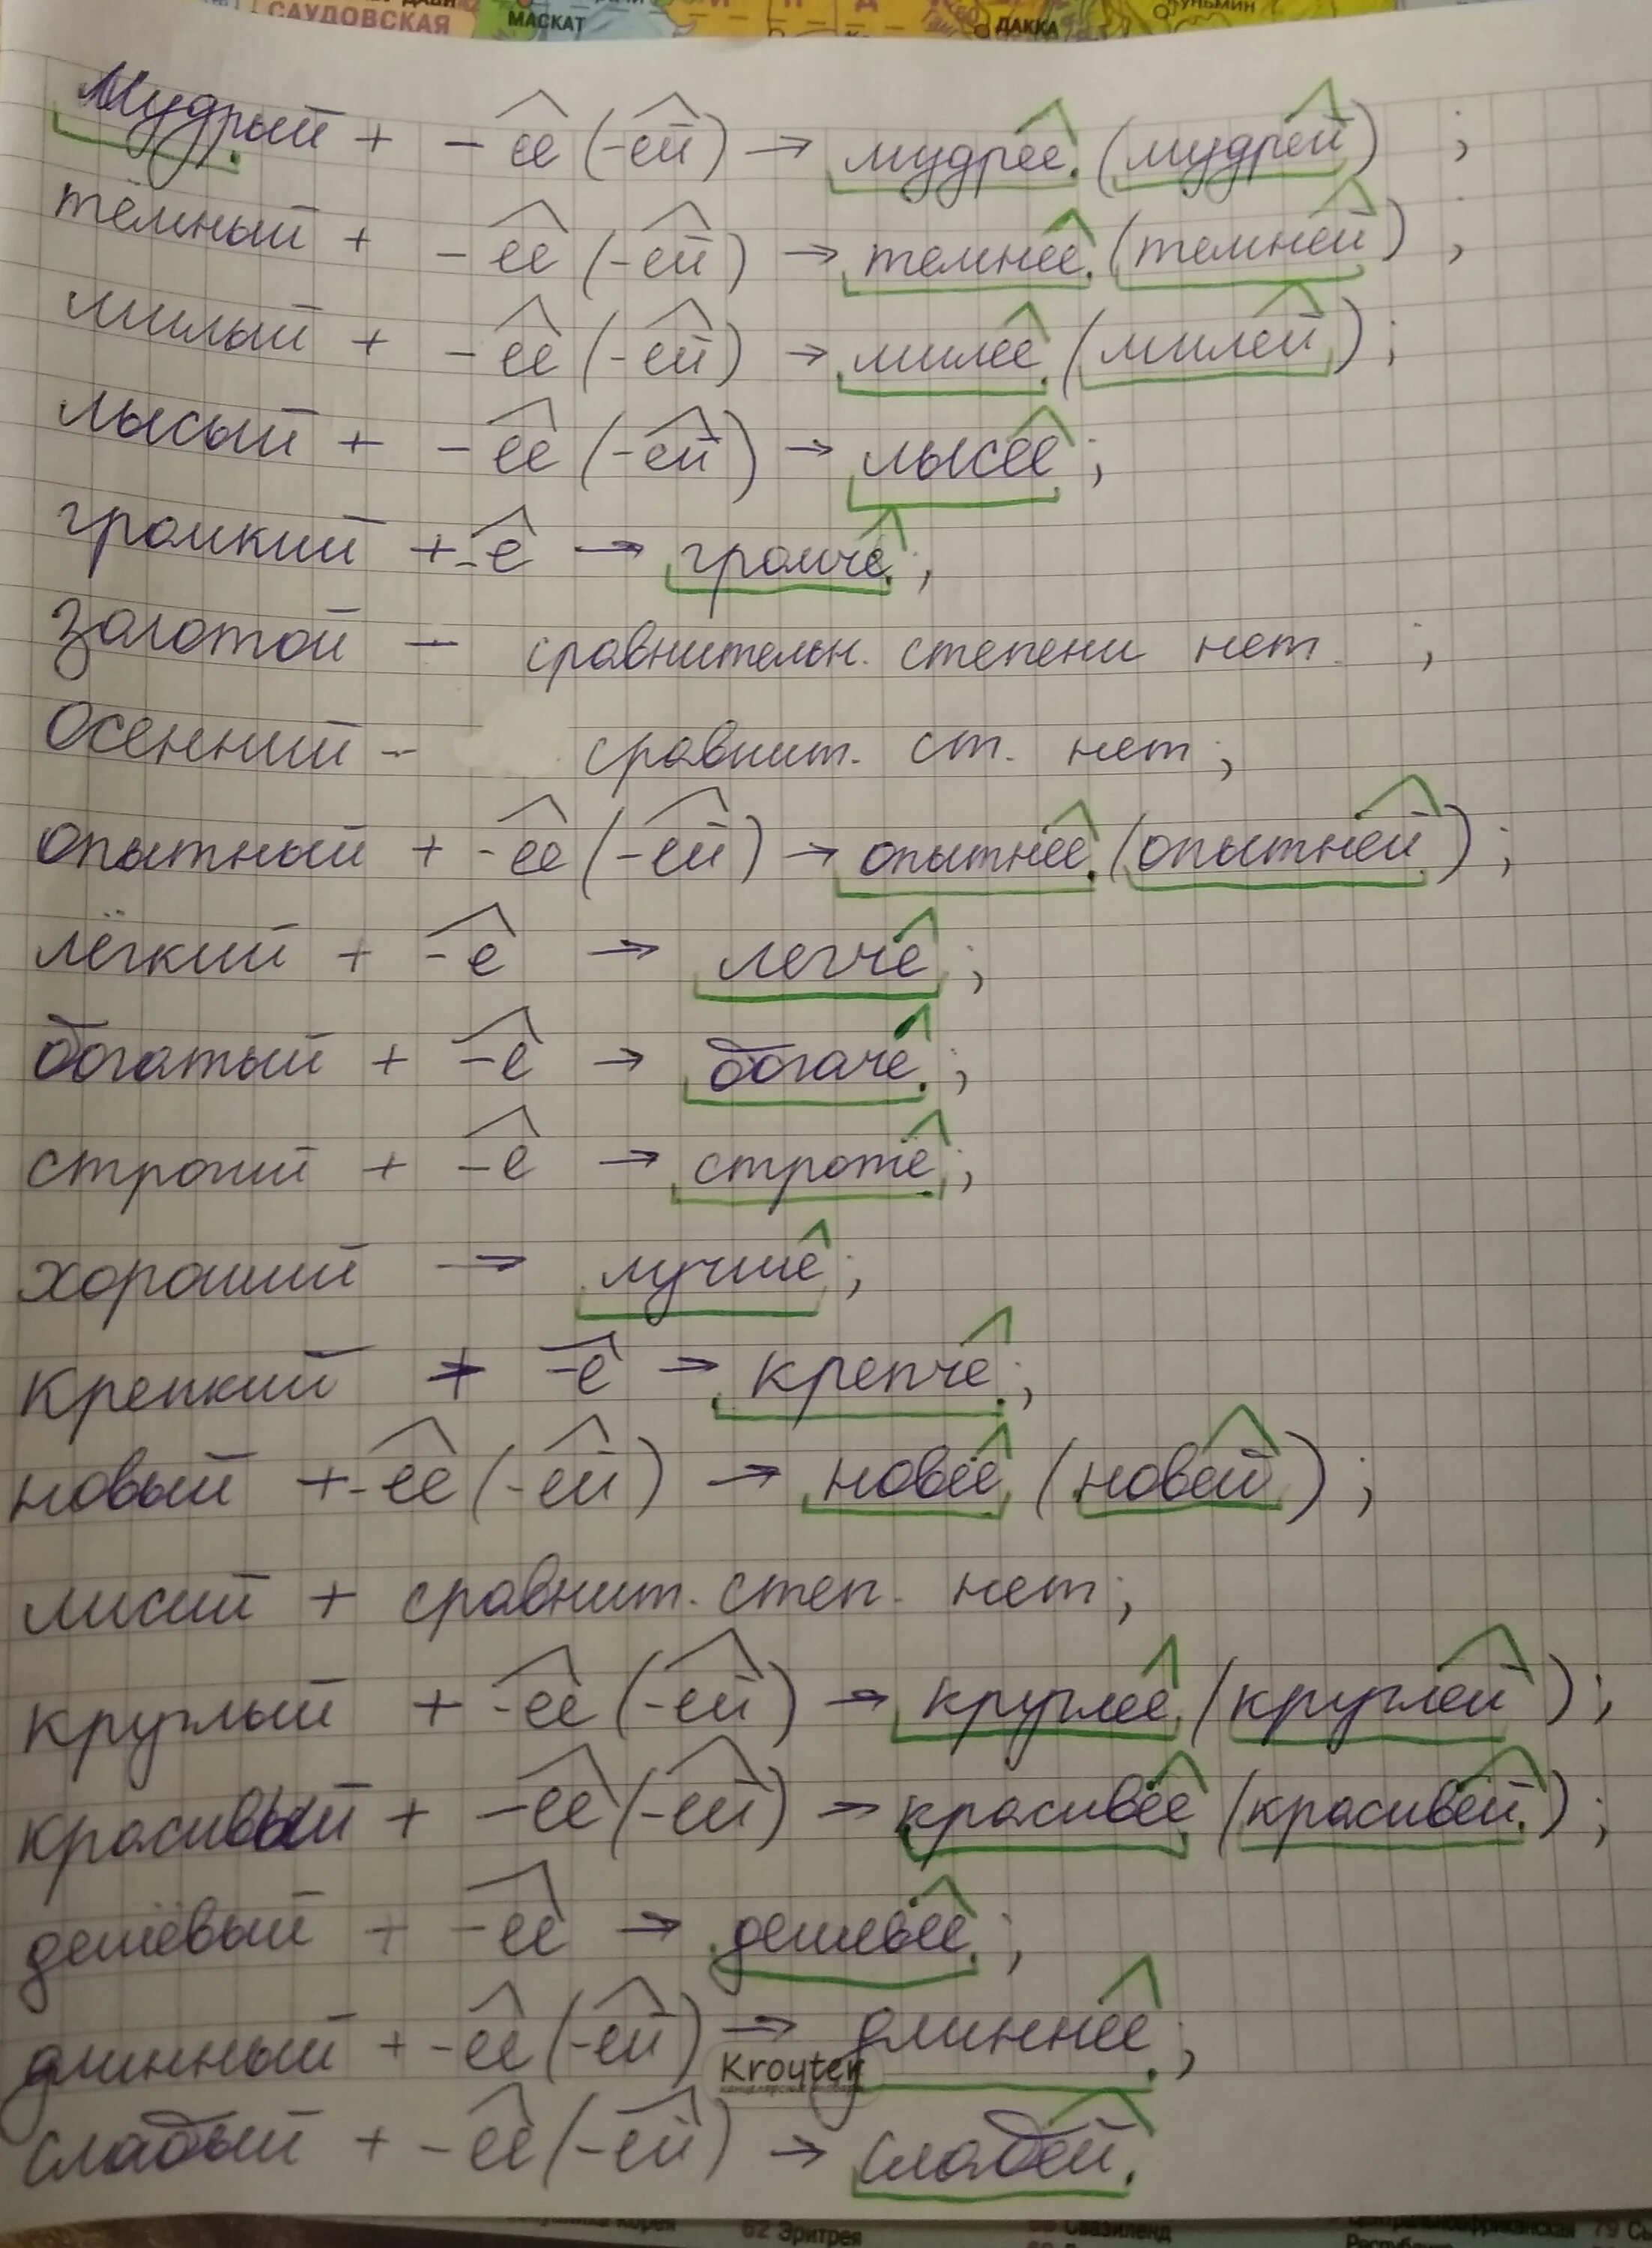 САУДОВСКАЯ МАСКАТ ДАККА
Мудрый + -ее (-ей) → мудрее (мудрей) ;
тёмный + -ее (-ей) → темнее (темней) ;
милый + -ее (-ей) → милее (милей) ;
лысый + -ее (-ей) → лысее ;
громкий + -е → громче ;
золотой – сравнительн. степени нет ;
осенний – сравнит. ст. нет ;
опытный + -ее (-ей) → опытнее (опытней) ;
лёгкий + -е → легче ;
богатый + -е → богаче ;
строгий + -е → строже ;
хороший → лучше ;
крепкий + -е → крепче ;
новый + -ее (-ей) → новее (новей) ;
лисий + сравнит. степ. нет ;
круглый + -ее (-ей) → круглее (круглей) ;
красивый + -ее (-ей) → красивее (красивей) ;
дешёвый + -ее → дешевее ;
длинный + -ее (-ей) → длиннее ;
Kroyter
канцелярские товары
слабый + -ее (-ей) → слабей.
62 Эритрея Свазиленд Центральноафриканская 79
Республика